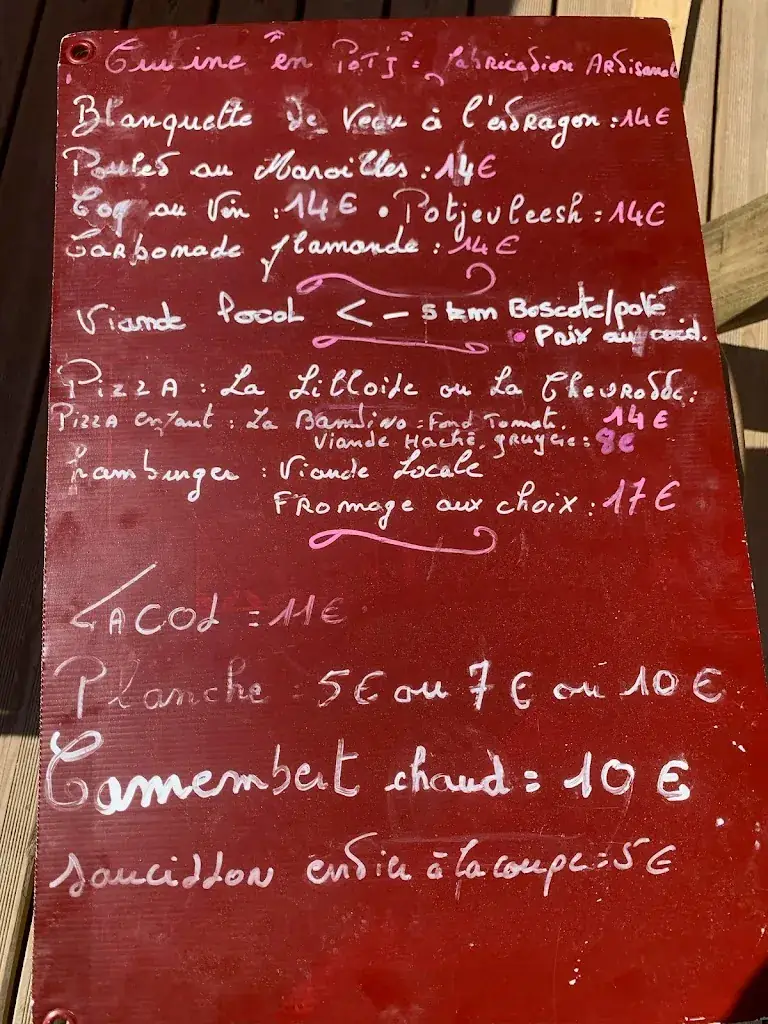 Cuisine "en Pot's" : Fabrication Artisanal
Blanquette de Veau à l'estragon : 14 €
Poulet au Maroilles : 14 €
Coq au Vin : 14 € • Potjevleesh = 14 €
Carbonade flamande : 14 €
Viande Local < - 5 km Boscote/poté
• Prix au coid.
Pizza : La Lilloise ou La Chevrotte :
14 €
Pizza enfant : La Bambino : Fond Tomat.
Viande Haché, gruyère : 8€
hamburger : Viande Locale
Fromage aux choix : 17 €
TACOS = 11 €
Planche = 5 € ou 7 € ou 10 €
Camembert chaud = 10 €
Saucisson entier à la coupe = 5 €